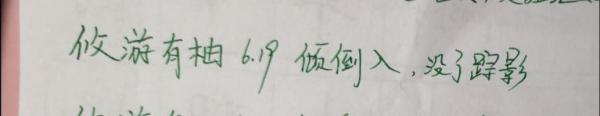 攸游有柚 6.19 倾倒入，没了踪影